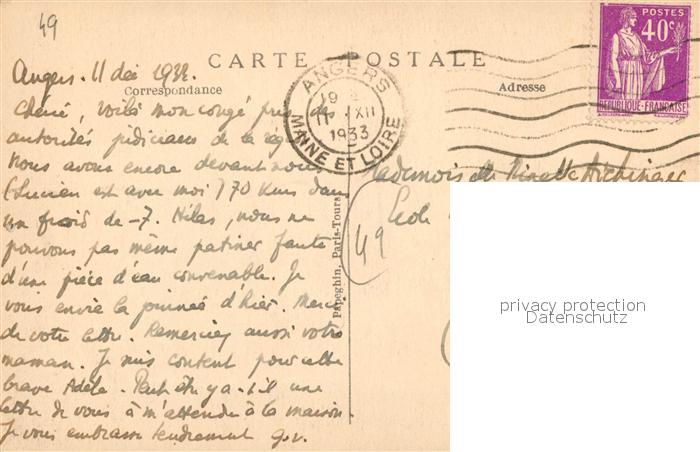 49
CARTE POSTALE
POSTES
40c
REPUBLIQUE-FRANÇAISE
Angers. 11 déc 1933.
Correspondance
Adresse
ANGERS
19
11 XII
1933
MAINE ET LOIRE
Chérie, Voilà mon congé pris de
autorités judiciaires de la
Nous avons encore devant nous
(Lucien est avec moi) 70 Kms dans
un froid de -7. Hélas, nous ne
pouvons pas même patiner faute
d'une pièce d'eau convenable. Je
vous envie la journée d'hier. Merci
de votre lettre. Remerciez aussi votre
maman. Je suis content pour cette
brave Adèle. Peut être y a-t-il une
lettre de vous à m'attendre à la maison.
Je vous embrasse tendrement
Mademoiselle
Ecole
49
Papeghin, Paris-Tours
privacy protection
Datenschutz